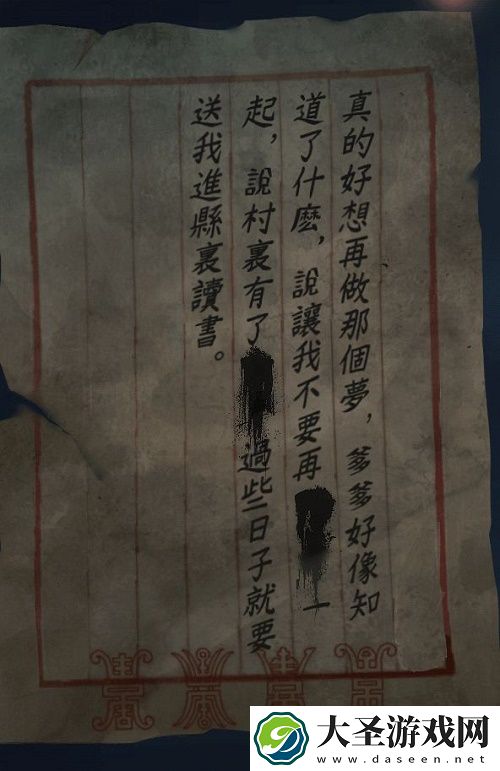 真的好想再做那個夢，爹爹好像知
道了什麽，說讓我不要再 一
起，說村裏有了 過些日子就要
送我進縣裏讀書。
大圣游戏网
www.daseen.net